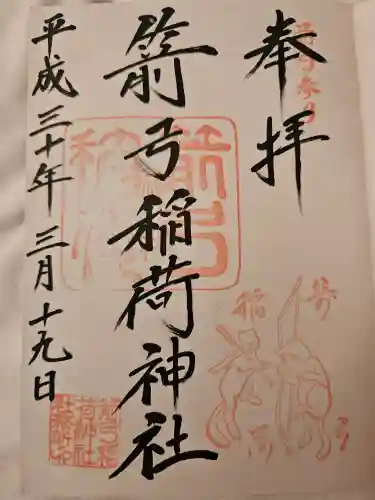 奉拝
箭弓稲荷神社
平成三十年三月十九日
箭弓
稲荷